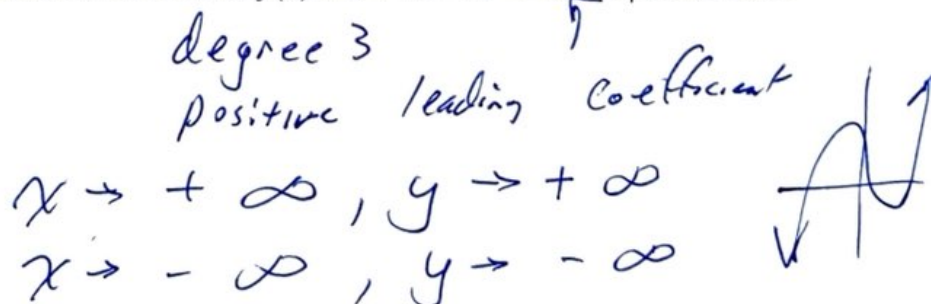 degree 3
positive leading coefficient
x → + ∞ , y → + ∞
x → - ∞ , y → - ∞